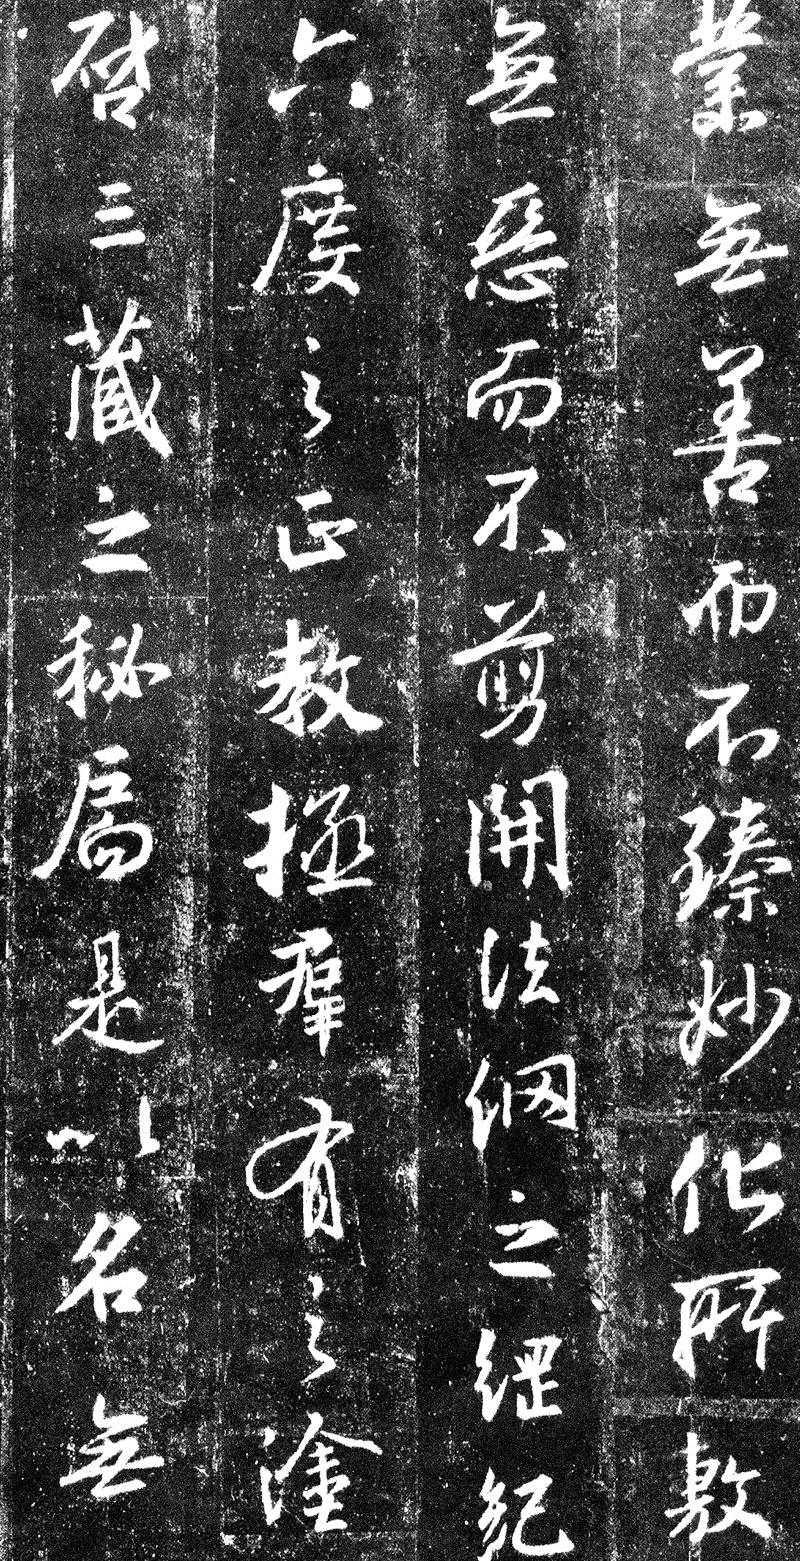 業無善而不臻妙化所敷
無惡而不剪開法網之綱紀
六度之正教拯羣有之塗
啓三藏之秘扃是以名無